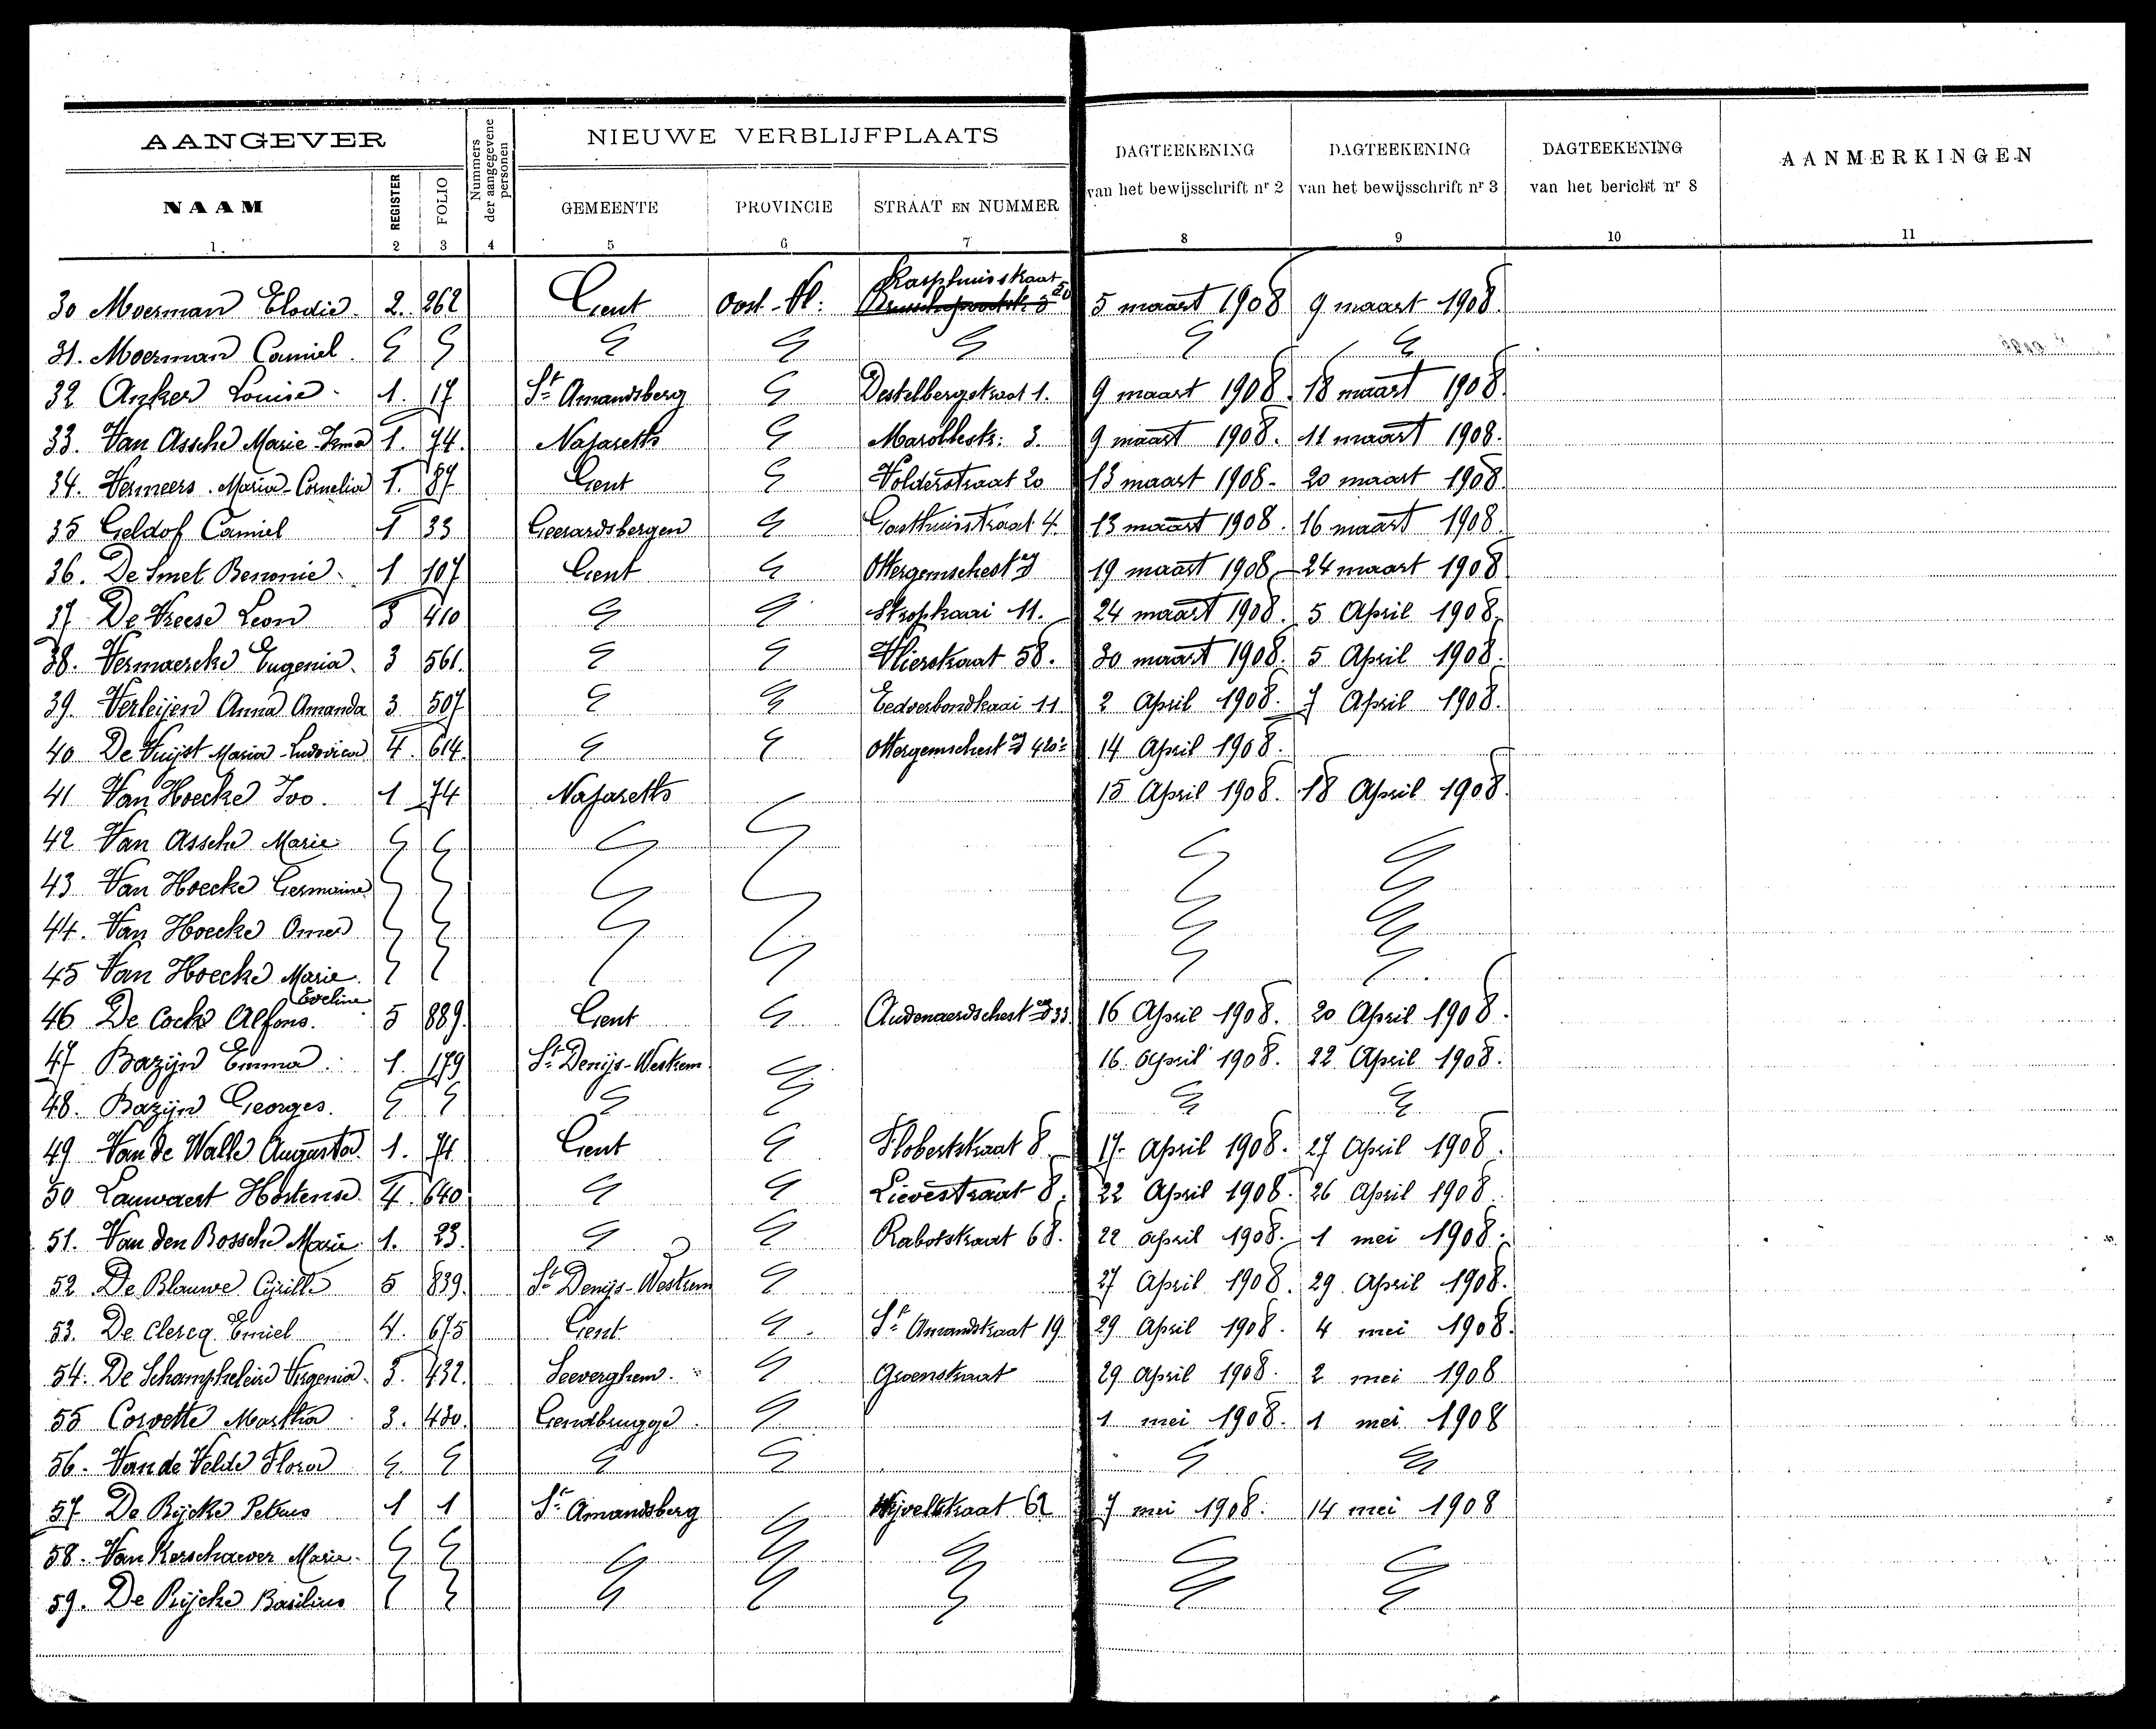 AANGEVER
Nummers der aangegevene personen
NIEUWE VERBLIJFPLAATS
DAGTEEKENING van het bewijsschrift nr 2
DAGTEEKENING van het bewijsschrift nr 3
DAGTEEKENING van het bericht nr 8
AANMERKINGEN
NAAM REGISTER FOLIO GEMEENTE PROVINCIE STRAAT EN NUMMER
1. 2 3 4 5 6 7 8 9 10 11
Rasphuisstraat 50
30 Moerman Elodie. 2. 262 Gent Oost-Vl: 5 maart 1908 9 maart 1908.
31. Moerman Camiel.
32 Anker Louise. 1. 17 St Amandsberg Destelbergstraat 1. 9 maart 1908. 18 maart 1908.
33. Van Assche Marie Irma 1. 74. Nazareth 3. 9 maart 1908. 11 maart 1908.
34. Vermeers. Maria-Cornelia 1. 87 Gent Volderstraat 20 13 maart 1908. 20 maart 1908
35 Geldof Camiel 1 33 Geerardsbergen Gasthuisstraat 4. 13 maart 1908. 16 maart 1908.
36. De Smet Benonie 1 107 Gent Ottergemschestwg 19 maart 1908 24 maart 1908
37 De Vreese Leon 3 410 Stropkaai 11. 24 maart 1908. 5 April 1908.
38. Vermaercke Eugenia. 3 561. Vlierstraat 58. 30 maart 1908. 5 April 1908.
39. Verleijen Anna Amanda 3 507 Eedverbondkaai 11 2 April 1908. 7 April 1908.
40 De Vuijst Maria-Ludovica 4. 614. Ottergemschestwg 14 April 1908.
41 Van Hoecke Ivo. 1 74 Nazareth 15 April 1908. 18 April 1908.
42 Van Assche Marie
43 Van Hoecke Germaine
44. Van Hoecke Omer
45 Van Hoecke Marie.
Eveline
46 De Cock Alfons. 5 889. Gent Audenaerdschestwg 33. 16 April 1908. 20 April 1908.
47 Bazijn Emma. 1. 179 St Denijs-Westrem 16. April 1908. 22 April 1908.
48. Bazijn Georges.
49 Van de Walle Augusta. 1. 71 Gent Flobertstraat 8 17. April 1908. 27 April 1908.
50 Lauwaert Hortense. 4. 640 Lievestraat 8. 22 April 1908. 26 April 1908.
51. Van den Bossche Marie 1. 23. Rabotstraat 68. 22 April 1908. 1 mei 1908.
52 De Blauwe Cyrille 5 839. St Denijs-Westrem 27 April 1908. 29 April 1908.
53. De Clercq Emiel 4. 675 Gent. St Amandstraat 19 29 April 1908. 4 mei 1908.
54. De Schamphelein Virgenia. 3. 432. Seeverghem. Groenstraat 29 April 1908. 2 mei 1908
55 Corvette Martha 3. 430. Gendbrugge. 1 mei 1908. 1 mei 1908
56. Van de Velde Flora
57 De Rijcke Petrus 1 1 St Amandsberg 62 7 mei 1908. 14 mei 1908
58. Van Kerschaever Marie.
59. De Rijcke Basilius